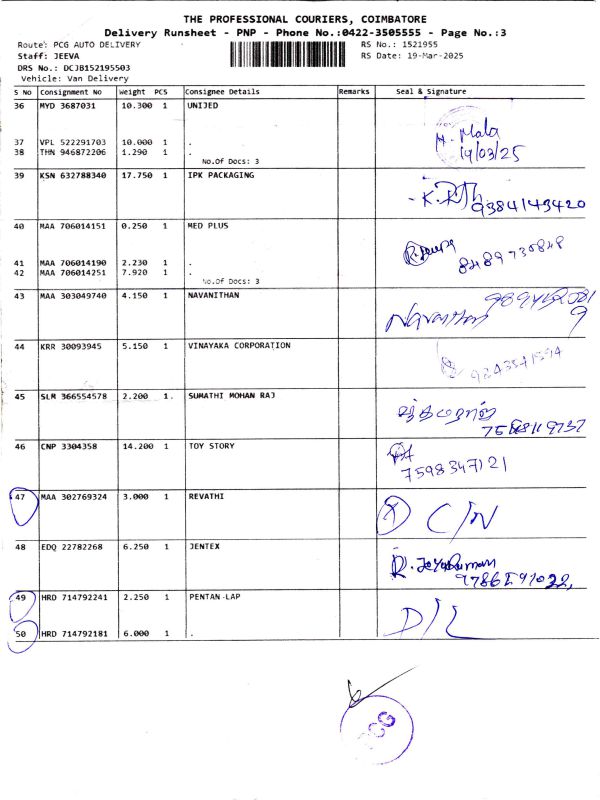 THE PROFESSIONAL COURIERS, COIMBATORE
Delivery Runsheet - PNP - Phone No.:0422-3505555 - Page No.:3
Route: PCG AUTO DELIVERY
RS No.: 1521955
Staff: JEEVA
RS Date: 19-Mar-2025
DRS No.: DCJB152195503
Vehicle: Van Delivery
S No Consignment No Weight PCS Consignee Details Remarks Seal & Signature
36 MYD 3687031 10.300 1 UNIJED
M. Mala
37 VPL 522291703 10.000 1 .
19/03/25
38 THN 946872206 1.290 1 .
No.Of Docs: 3
39 KSN 632788340 17.750 1 IPK PACKAGING
9384143420
40 MAA 706014151 0.250 1 MED PLUS
8489730848
41 MAA 706014190 2.230 1 .
42 MAA 706014251 7.920 1 .
No.Of Docs: 3
43 MAA 303049740 4.150 1 NAVANITHAN
Navanithan
44 KRR 30093945 5.150 1 VINAYAKA CORPORATION
9843541594
45 SLM 366554578 2.200 1. SUMATHI MOHAN RAJ
46 CNP 3304358 14.200 1 TOY STORY
7598347121
47 MAA 302769324 3.000 1 REVATHI
C/N
48 EDQ 22782268 6.250 1 JENTEX
R. Jeyakumar
49 HRD 714792241 2.250 1 PENTAN-LAP
D/L
50 HRD 714792181 6.000 1 .
PCG